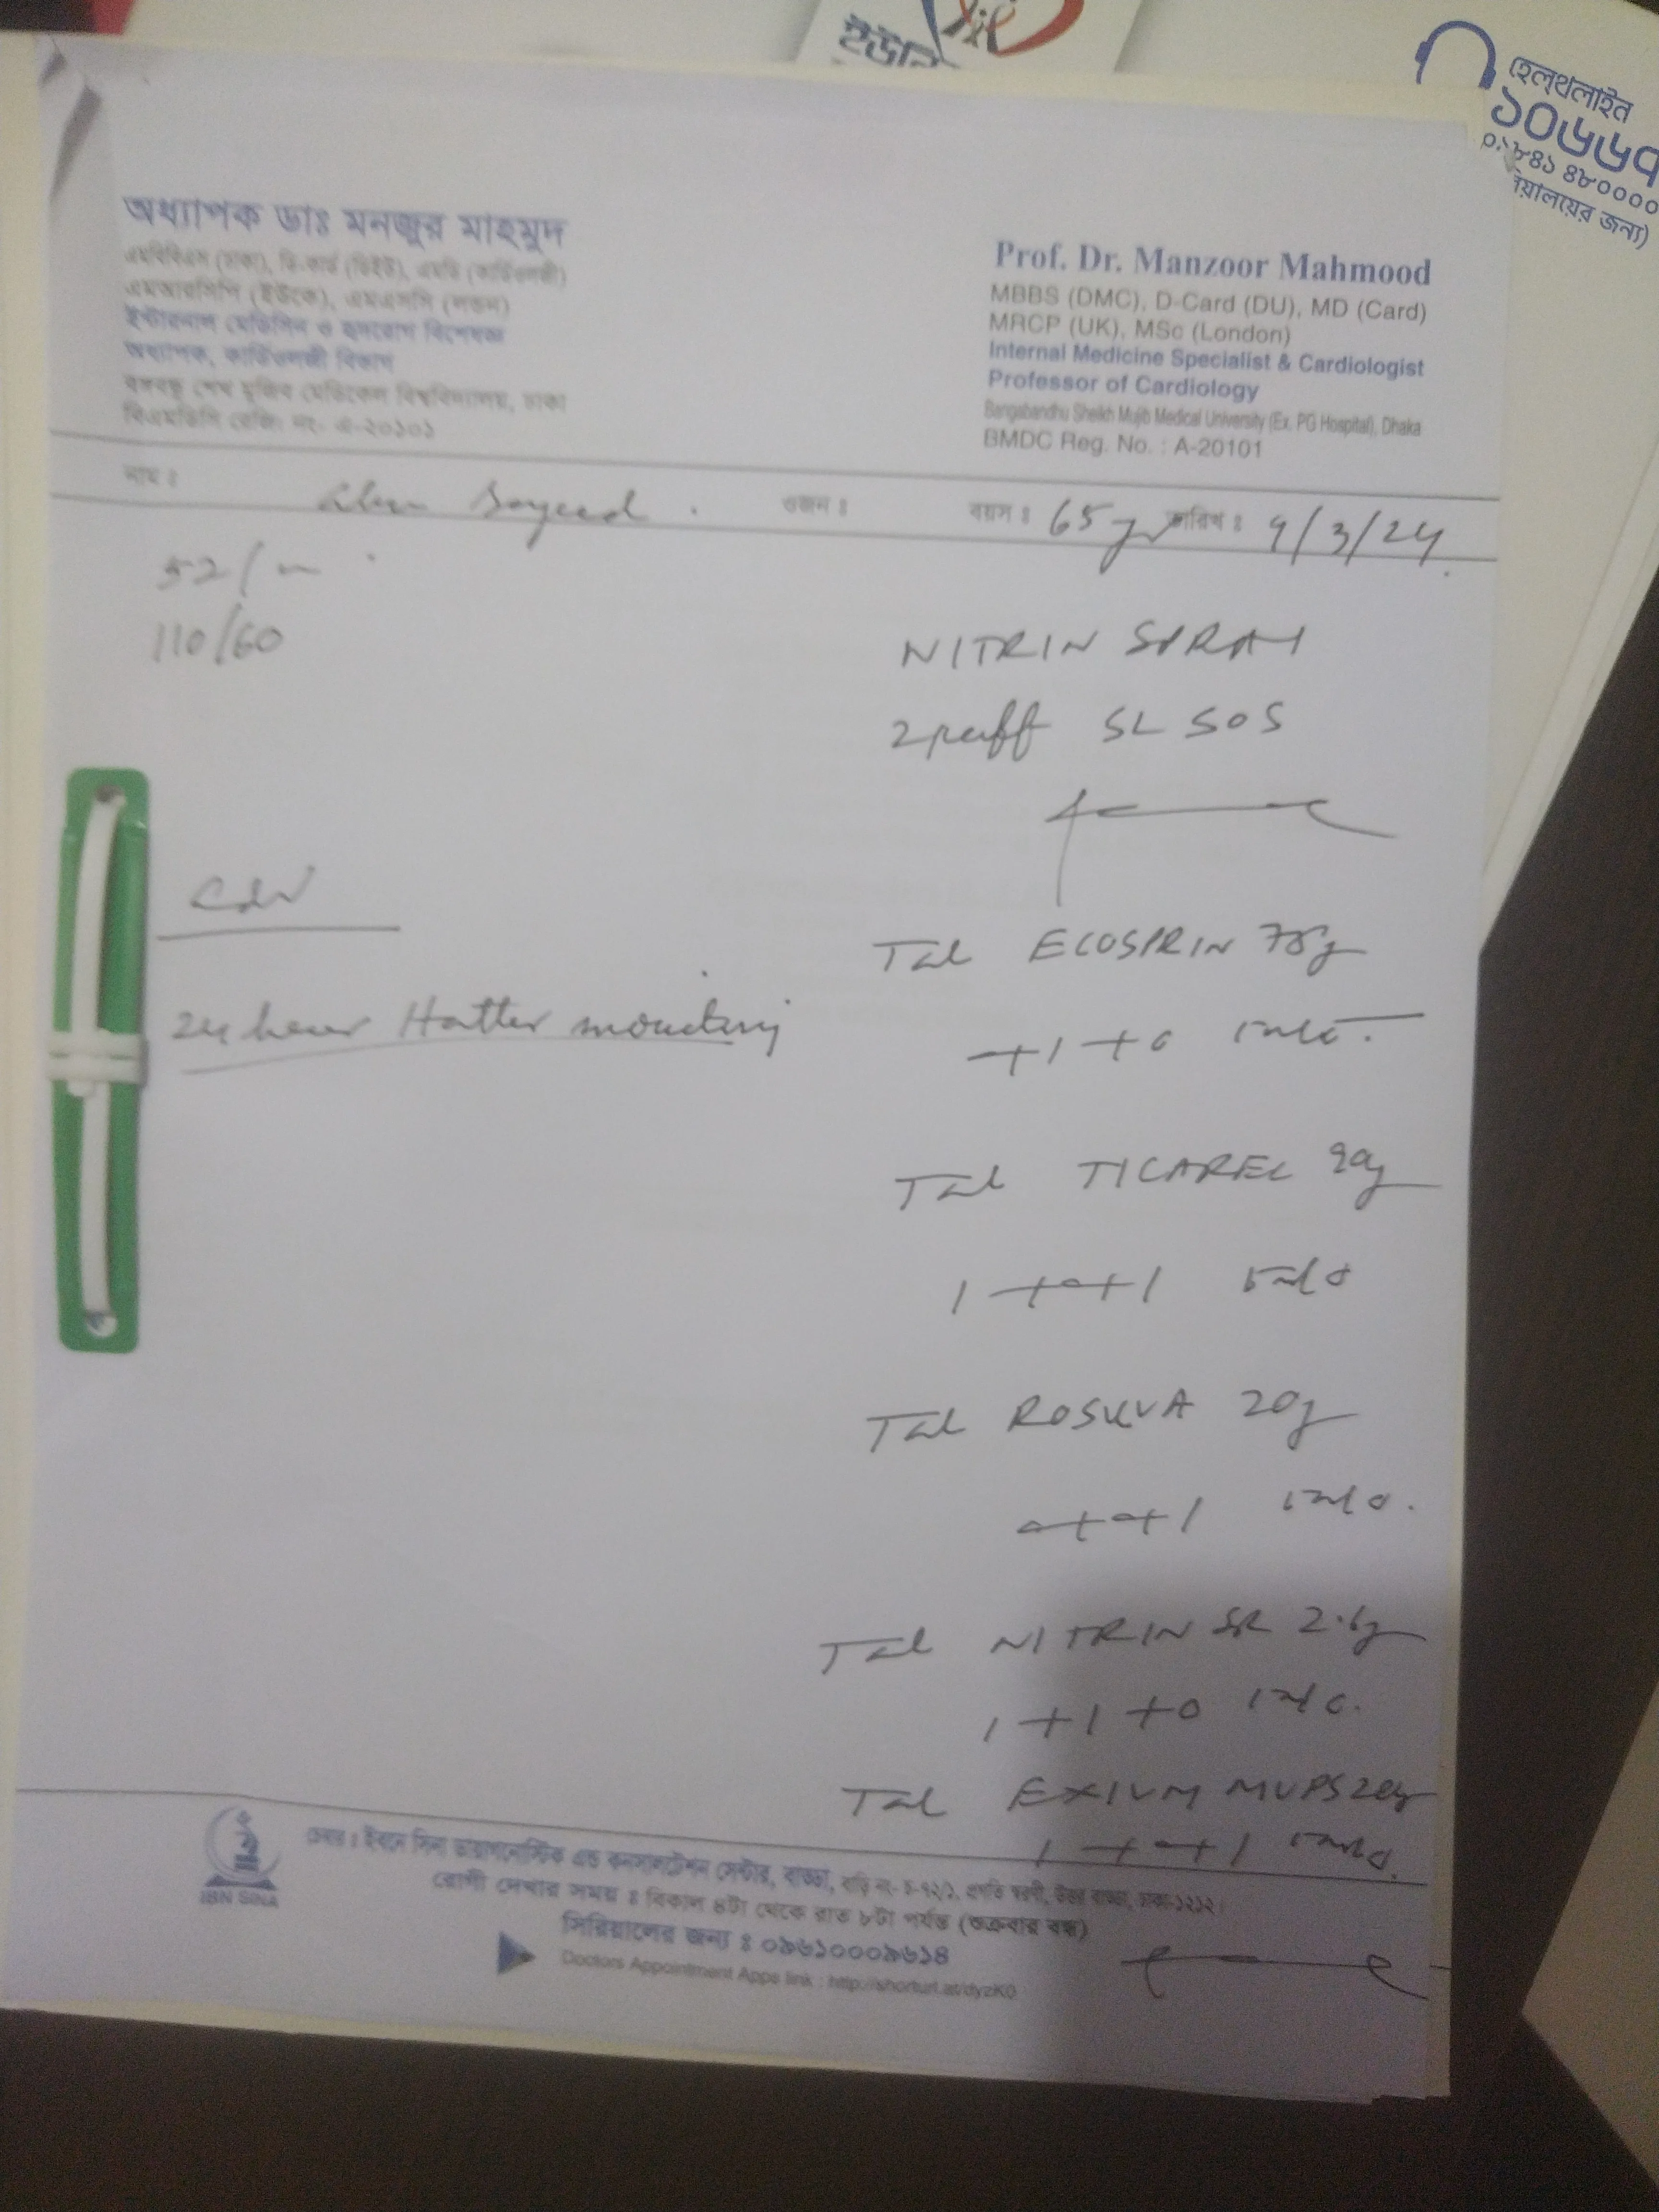 ইউনি
হেল্থলাইন
১০৬৬৭
০৯৮৪১ ৪৮০০০০
রিয়ালের জন্য)
অধ্যাপক ডাঃ মনজুর মাহমুদ
এমবিবিএস (ঢাকা), ডি-কার্ড (ডিইউ), এমডি (কার্ডিওলজী)
এমআরসিপি (ইউকে), এমএসসি (লন্ডন)
ইন্টারনাল মেডিসিন ও হৃদরোগ বিশেষজ্ঞ
অধ্যাপক, কার্ডিওলজী বিভাগ
বঙ্গবন্ধু শেখ মুজিব মেডিকেল বিশ্ববিদ্যালয়, ঢাকা
বিএমডিসি রেজি: নং- এ-২০১০১
Prof. Dr. Manzoor Mahmood
MBBS (DMC), D-Card (DU), MD (Card)
MRCP (UK), MSc (London)
Internal Medicine Specialist & Cardiologist
Professor of Cardiology
Bangabandhu Sheikh Mujib Medical University (Ex. PG Hospital), Dhaka
BMDC Reg. No. : A-20101
নাম ঃ Sayeed ওজন ঃ বয়স ঃ 65 yr তারিখ ঃ 9/3/24
52/m
110/60
NITRIN SPRAY
2 puff SL SOS
24 hour Holter monitoring
Tab ECOSPRIN 75mg
0+1+0
Tab TICAREL 90mg
1+0+1
Tab ROSUVA 20mg
0+0+1
Tab NITRIN SR 2.6mg
1+1+0
Tab EXIUM MUPS 20mg
1+0+1
IBN SINA
চেম্বার : ইবনে সিনা ডায়াগনোস্টিক এন্ড কনসালটেশন সেন্টার, বাড্ডা, বাড়ি নং- চ-৭২/১, প্রগতি স্বরণী, উত্তর বাড্ডা, ঢাকা-১২১২।
রোগী দেখার সময় ঃ বিকাল ৪টা থেকে রাত ৮টা পর্যন্ত (শুক্রবার বন্ধ)
সিরিয়ালের জন্য ঃ ০৯৬১০০০৯৬১৪
Doctors Appointment Apps link : http://shorturl.at/dyzK0